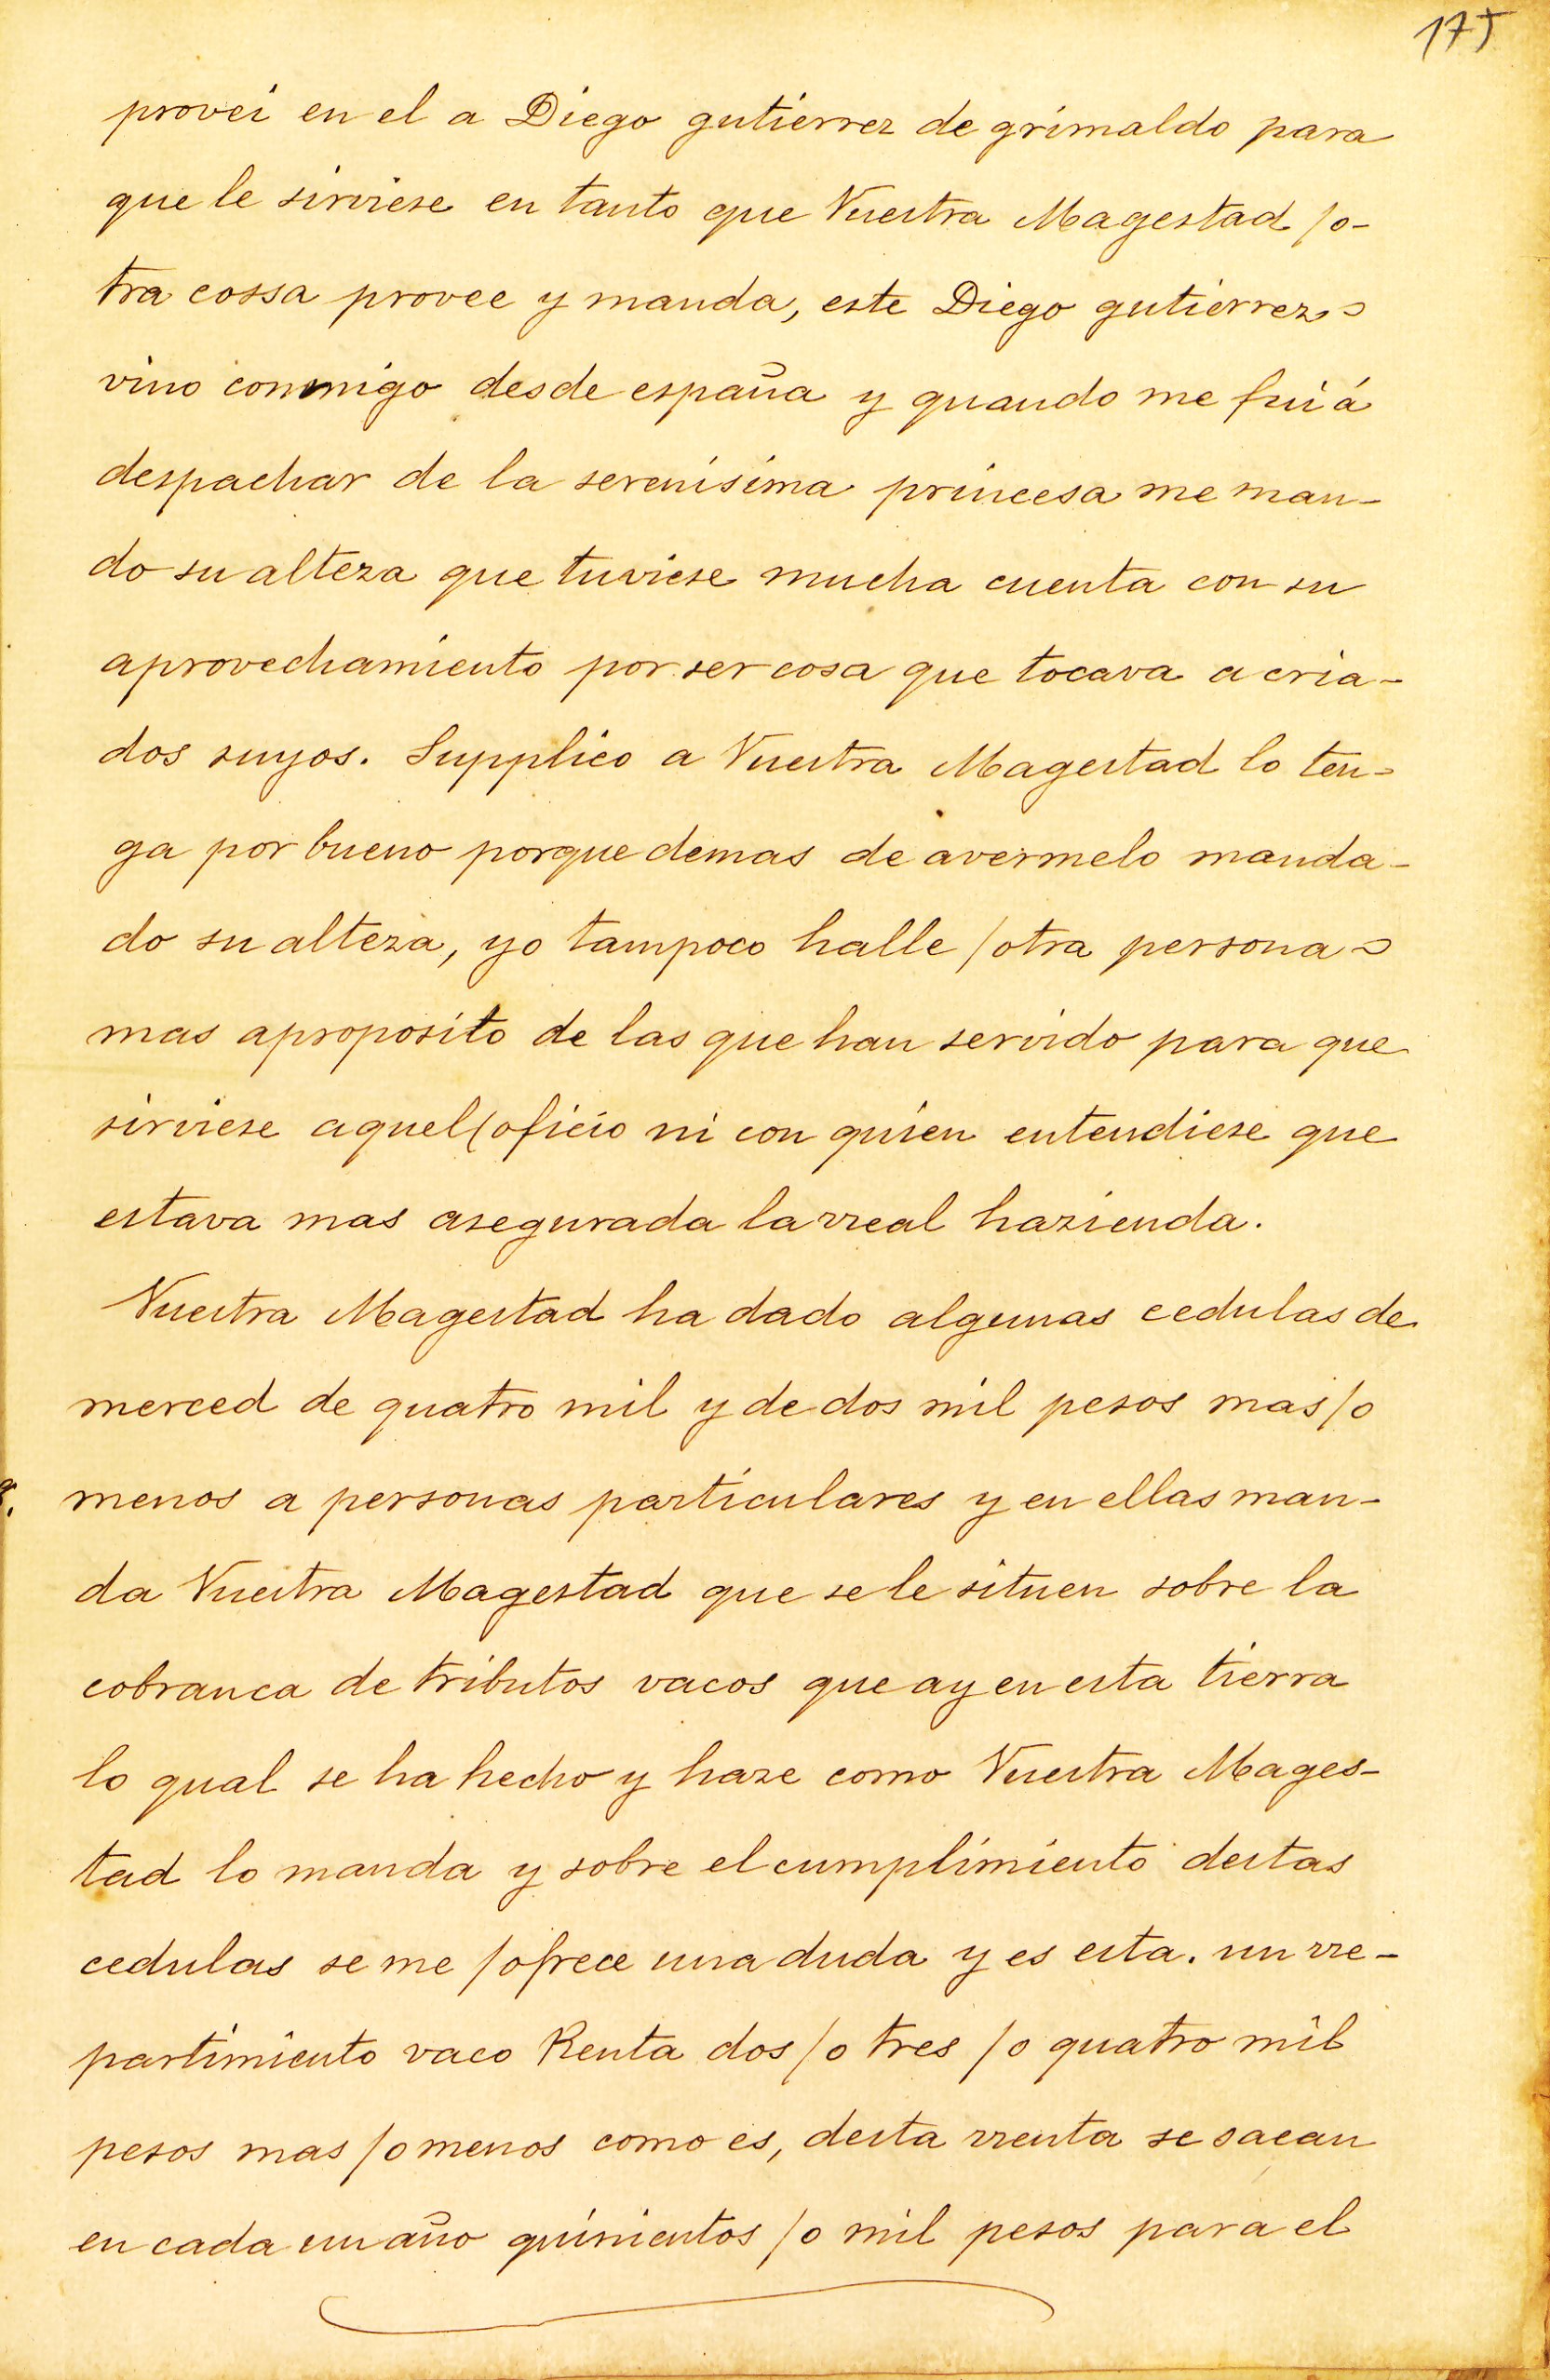 175
provei en el a Diego gutierrez de grimaldo para
que le sirviese en tanto que Vuestra Magestad /o-
tra cossa provee y manda, este Diego gutierrez
vino conmigo desde españa y quando me fui á
despachar de la serenisima princesa me man-
do su alteza que tuviese mucha cuenta con su
aprovechamiento por ser cosa que tocava a cria-
dos suyos. Supplico a Vuestra Magestad lo ten-
ga por bueno porque demas de avermelo manda-
do su alteza, yo tampoco halle /otra persona
mas aproposito de las que han servido para que
sirviese aquel (oficio ni con quien entendiese que
estava mas asegurada la rreal hazienda.
Vuestra Magestad ha dado algunas cedulas de
merced de quatro mil y de dos mil pesos mas /o
menos a personas particulares y en ellas man-
da Vuestra Magestad que se le situen sobre la
cobranca de tributos vacos que ay en esta tierra
lo qual se ha hecho y haze como Vuestra Mages-
tad lo manda y sobre el cumplimiento destas
cedulas se me /ofrece una duda y es esta. un rre-
partimiento vaco Renta dos /o tres /o quatro mil
pesos mas /o menos como es, desta rrenta se sacan
en cada un año quinientos /o mil pesos para el